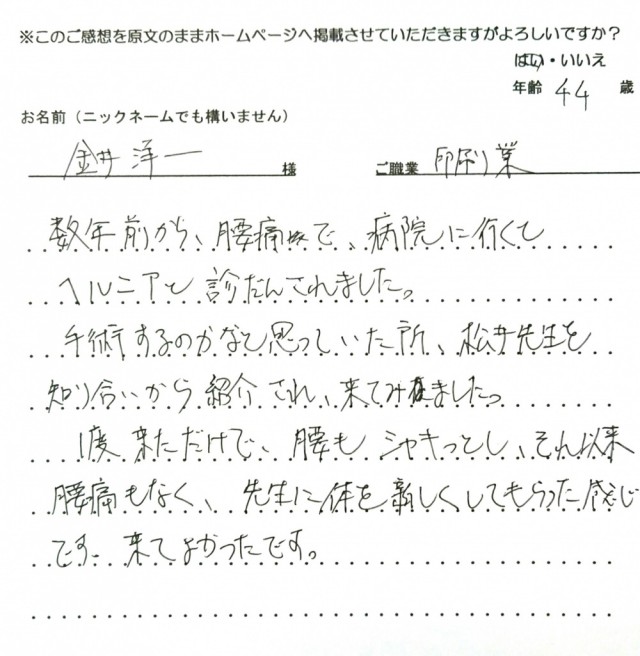 ※このご感想を原文のままホームページへ掲載させていただきますがよろしいですか？
はい・いいえ
年齢 44 歳
お名前（ニックネームでも構いません）
金井 洋一 様 ご職業 印刷業
数年前から、腰痛で、病院に行くと
ヘルニアと診だんされました。
手術するのかなと思っていた所、松井先生を
知り合いから紹介され、来てみました。
1度来ただけで、腰もシャキっとし、それ以来
腰痛もなく、先生に体を新しくしてもらった感じ
です。来てよかったです。